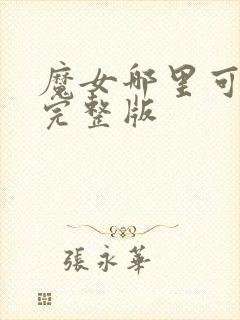 魔女哪里可
完整版
張永華